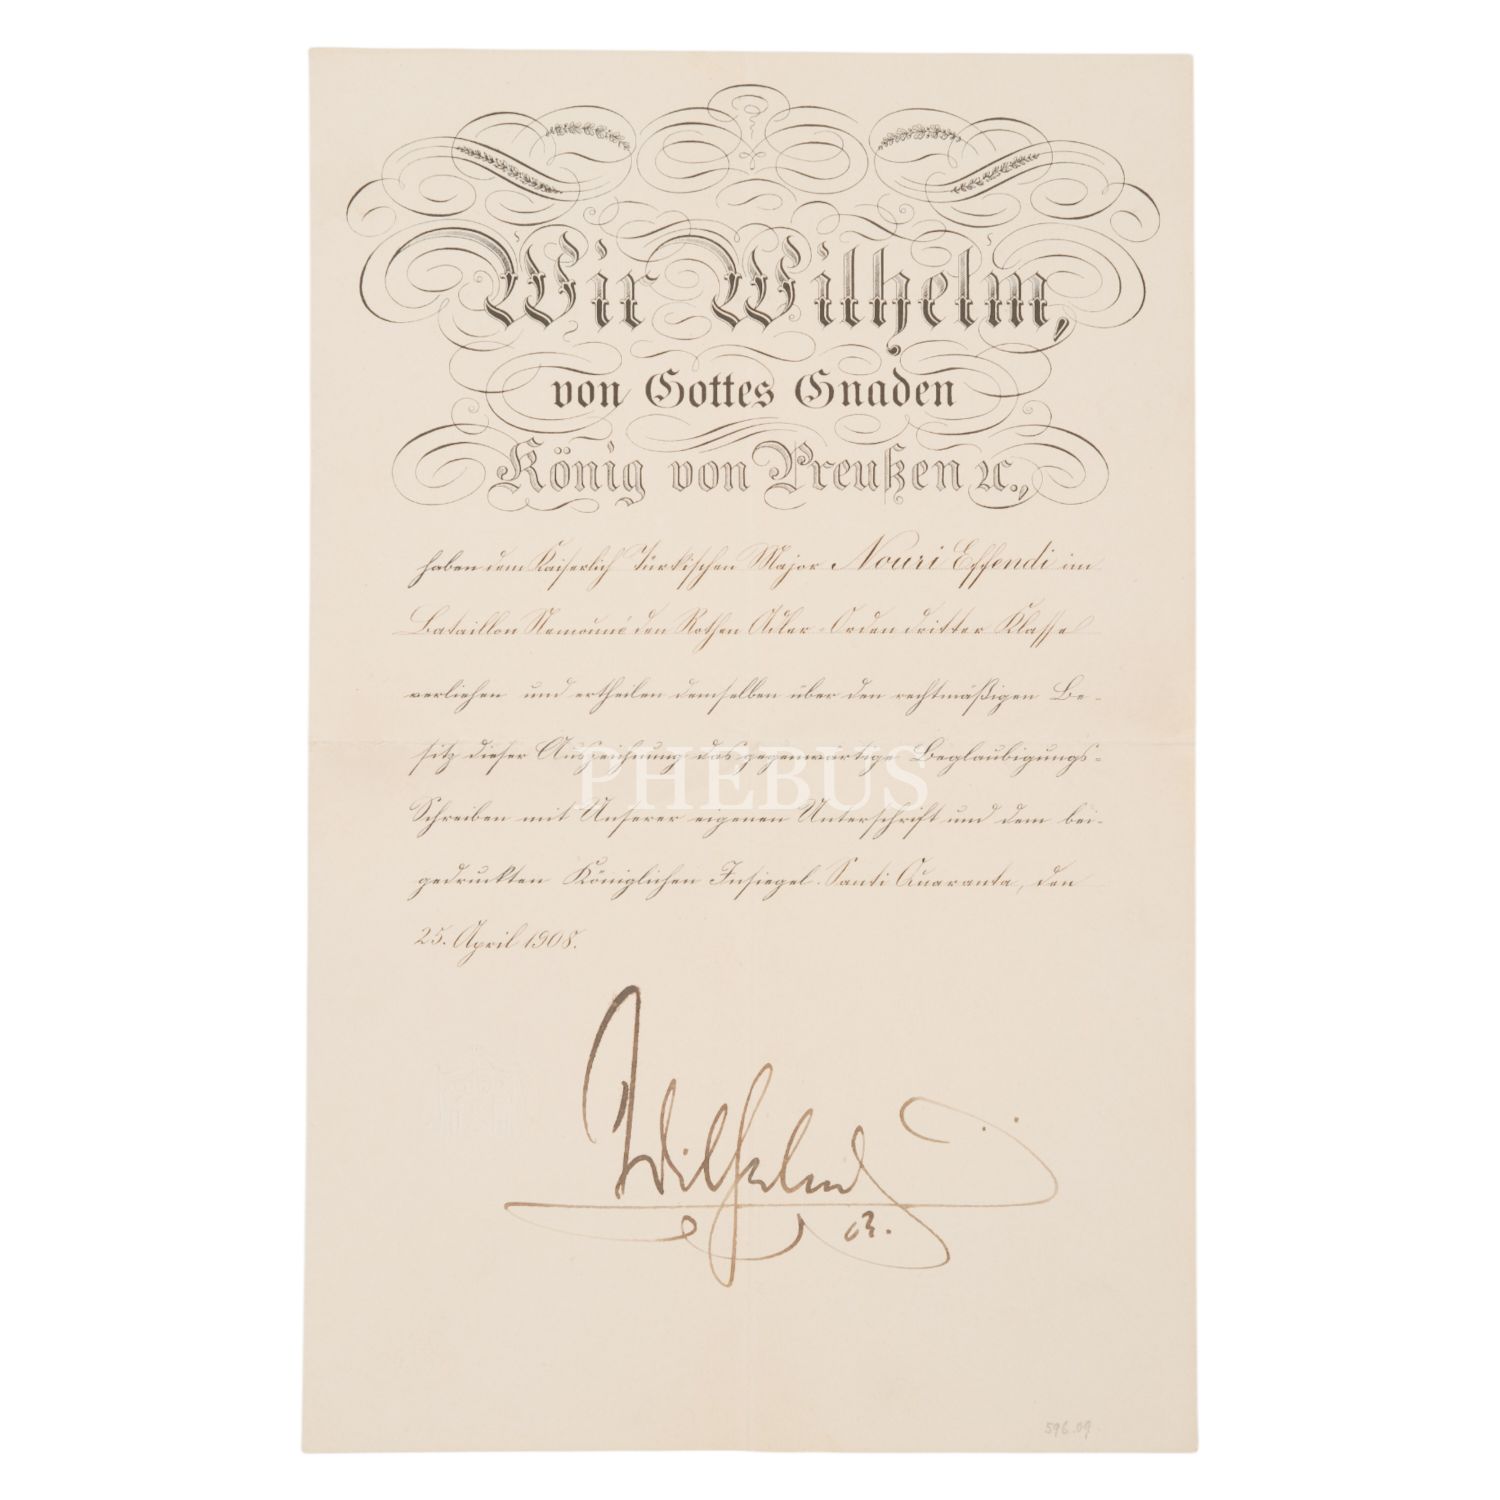 Wir Wilhelm,
von Gottes Gnaden
König von Preußen ꝛc.,
haben dem Kaiserlich Türkischen Major Nouri Effendi im
Bataillon Nemouné den Rothen Adler-Orden dritter Klasse
verliehen und ertheilen demselben über den rechtmäßigen Be-
sitz dieser Auszeichnung das gegenwärtige Beglaubigungs-
PHEBUS
Schreiben mit Unserer eigenen Unterschrift und dem bei-
gedruckten Königlichen Insiegel. Santi Quaranta, den
25. April 1908.
Wilhelm
596.09